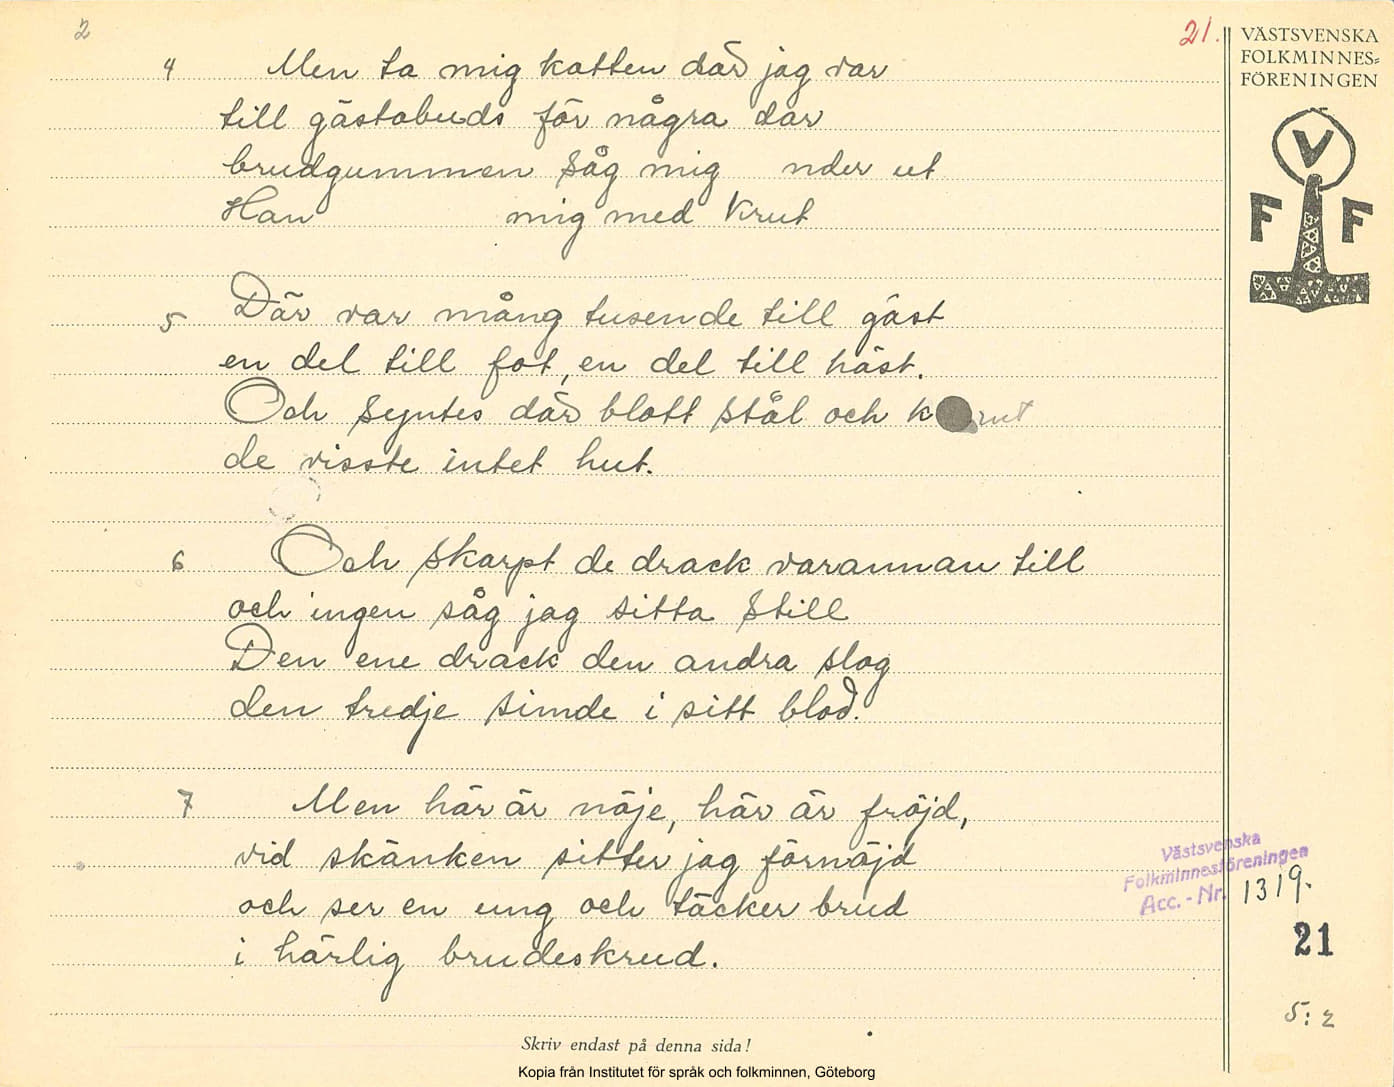 2
21.
VÄSTSVENSKA
FOLKMINNES=
FÖRENINGEN
V
F F
4 Men ta mig katten där jag var
till gästabuds för några dar
brudgummen såg mig nder ut
Han mig med krut
5 Där var mång tusende till gäst
en del till fot, en del till häst.
Och syntes där blott stål och krut
de visste intet hut.
6 Och skarpt de drack varannan till
och ingen såg jag sitta still
Den ene drack den andra slog
den tredje simde i sitt blod.
7 Men här är nöje, här är fröjd,
vid skänken sitter jag förnöjd
och ser en ung och täcker brud
i härlig brudeskrud.
Västsvenska
Folkminnesföreningen
Acc. - Nr. 1319.
21
5:2
Skriv endast på denna sida!
Kopia från Institutet för språk och folkminnen, Göteborg